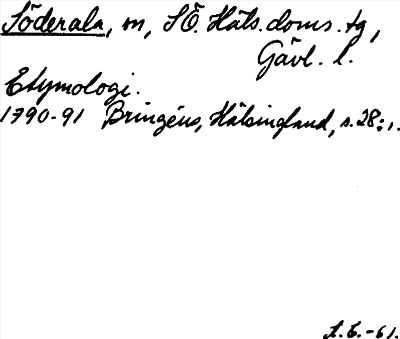 Söderala, sn, SÖ. Häls. doms. tg,
Gävl. l.
Etymologi.
1790-91 Bringéus, Hälsingland, s. 28:1.
A.E.-61.